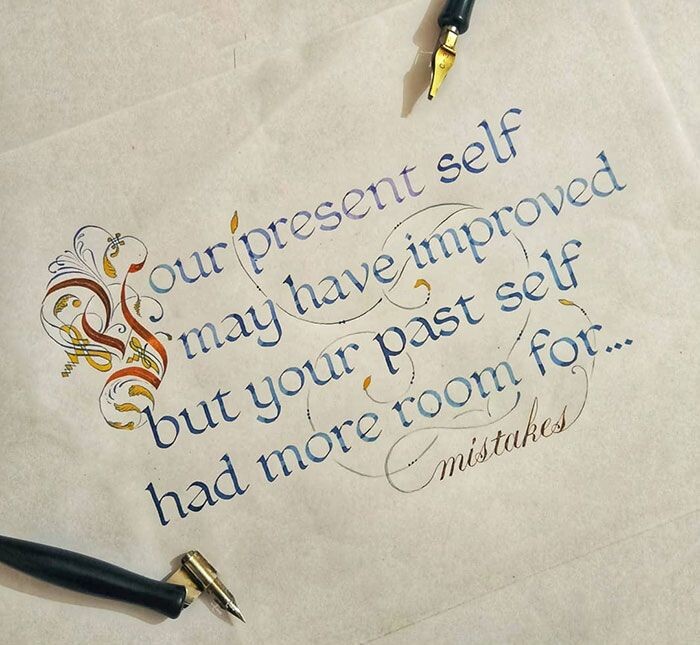 Your present self
may have improved
but your past self
had more room for...
mistakes